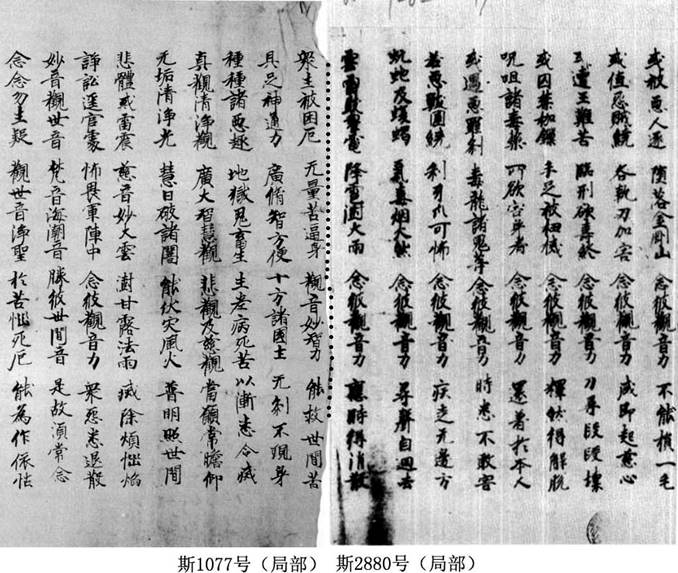 或被惡人逐 墮落金剛山 念彼觀音力 不能損一毛
或值怨賊繞 各執刀加害 念彼觀音力 咸即起慈心
或遭王難苦 臨刑欲壽終 念彼觀音力 刀尋段段壞
或囚禁枷鎖 手足被杻械 念彼觀音力 釋然得解脫
呪咀諸毒藥 所欲害身者 念彼觀音力 還著於本人
或遇惡羅剎 毒龍諸鬼等 念彼觀音力 時悉不敢害
若惡獸圍繞 利牙爪可怖 念彼觀音力 疾走无邊方
蚖蛇及蝮蝎 氣毒烟火然 念彼觀音力 尋聲自迴去
雲雷鼓掣電 降雹澍大雨 念彼觀音力 應時得消散
眾生被困厄 无量苦逼身 觀音妙智力 能救世間苦
具足神通力 廣脩智方便 十方諸國土 无剎不現身
種種諸惡趣 地獄鬼畜生 生老病死苦 以漸悉令滅
真觀清淨觀 廣大智慧觀 悲觀及慈觀 常願常瞻仰
无垢清淨光 慧日破諸闇 能伏灾風火 普明照世間
悲體戒雷震 慈音妙大雲 澍甘露法雨 滅除煩惱焰
諍訟逕官處 怖畏軍陣中 念彼觀音力 眾怨悉退散
妙音觀世音 梵音海潮音 勝彼世間音 是故須常念
念念勿生疑 觀世音淨聖 於苦惱死厄 能為作依怙
斯1077号（局部） 斯2880号（局部）